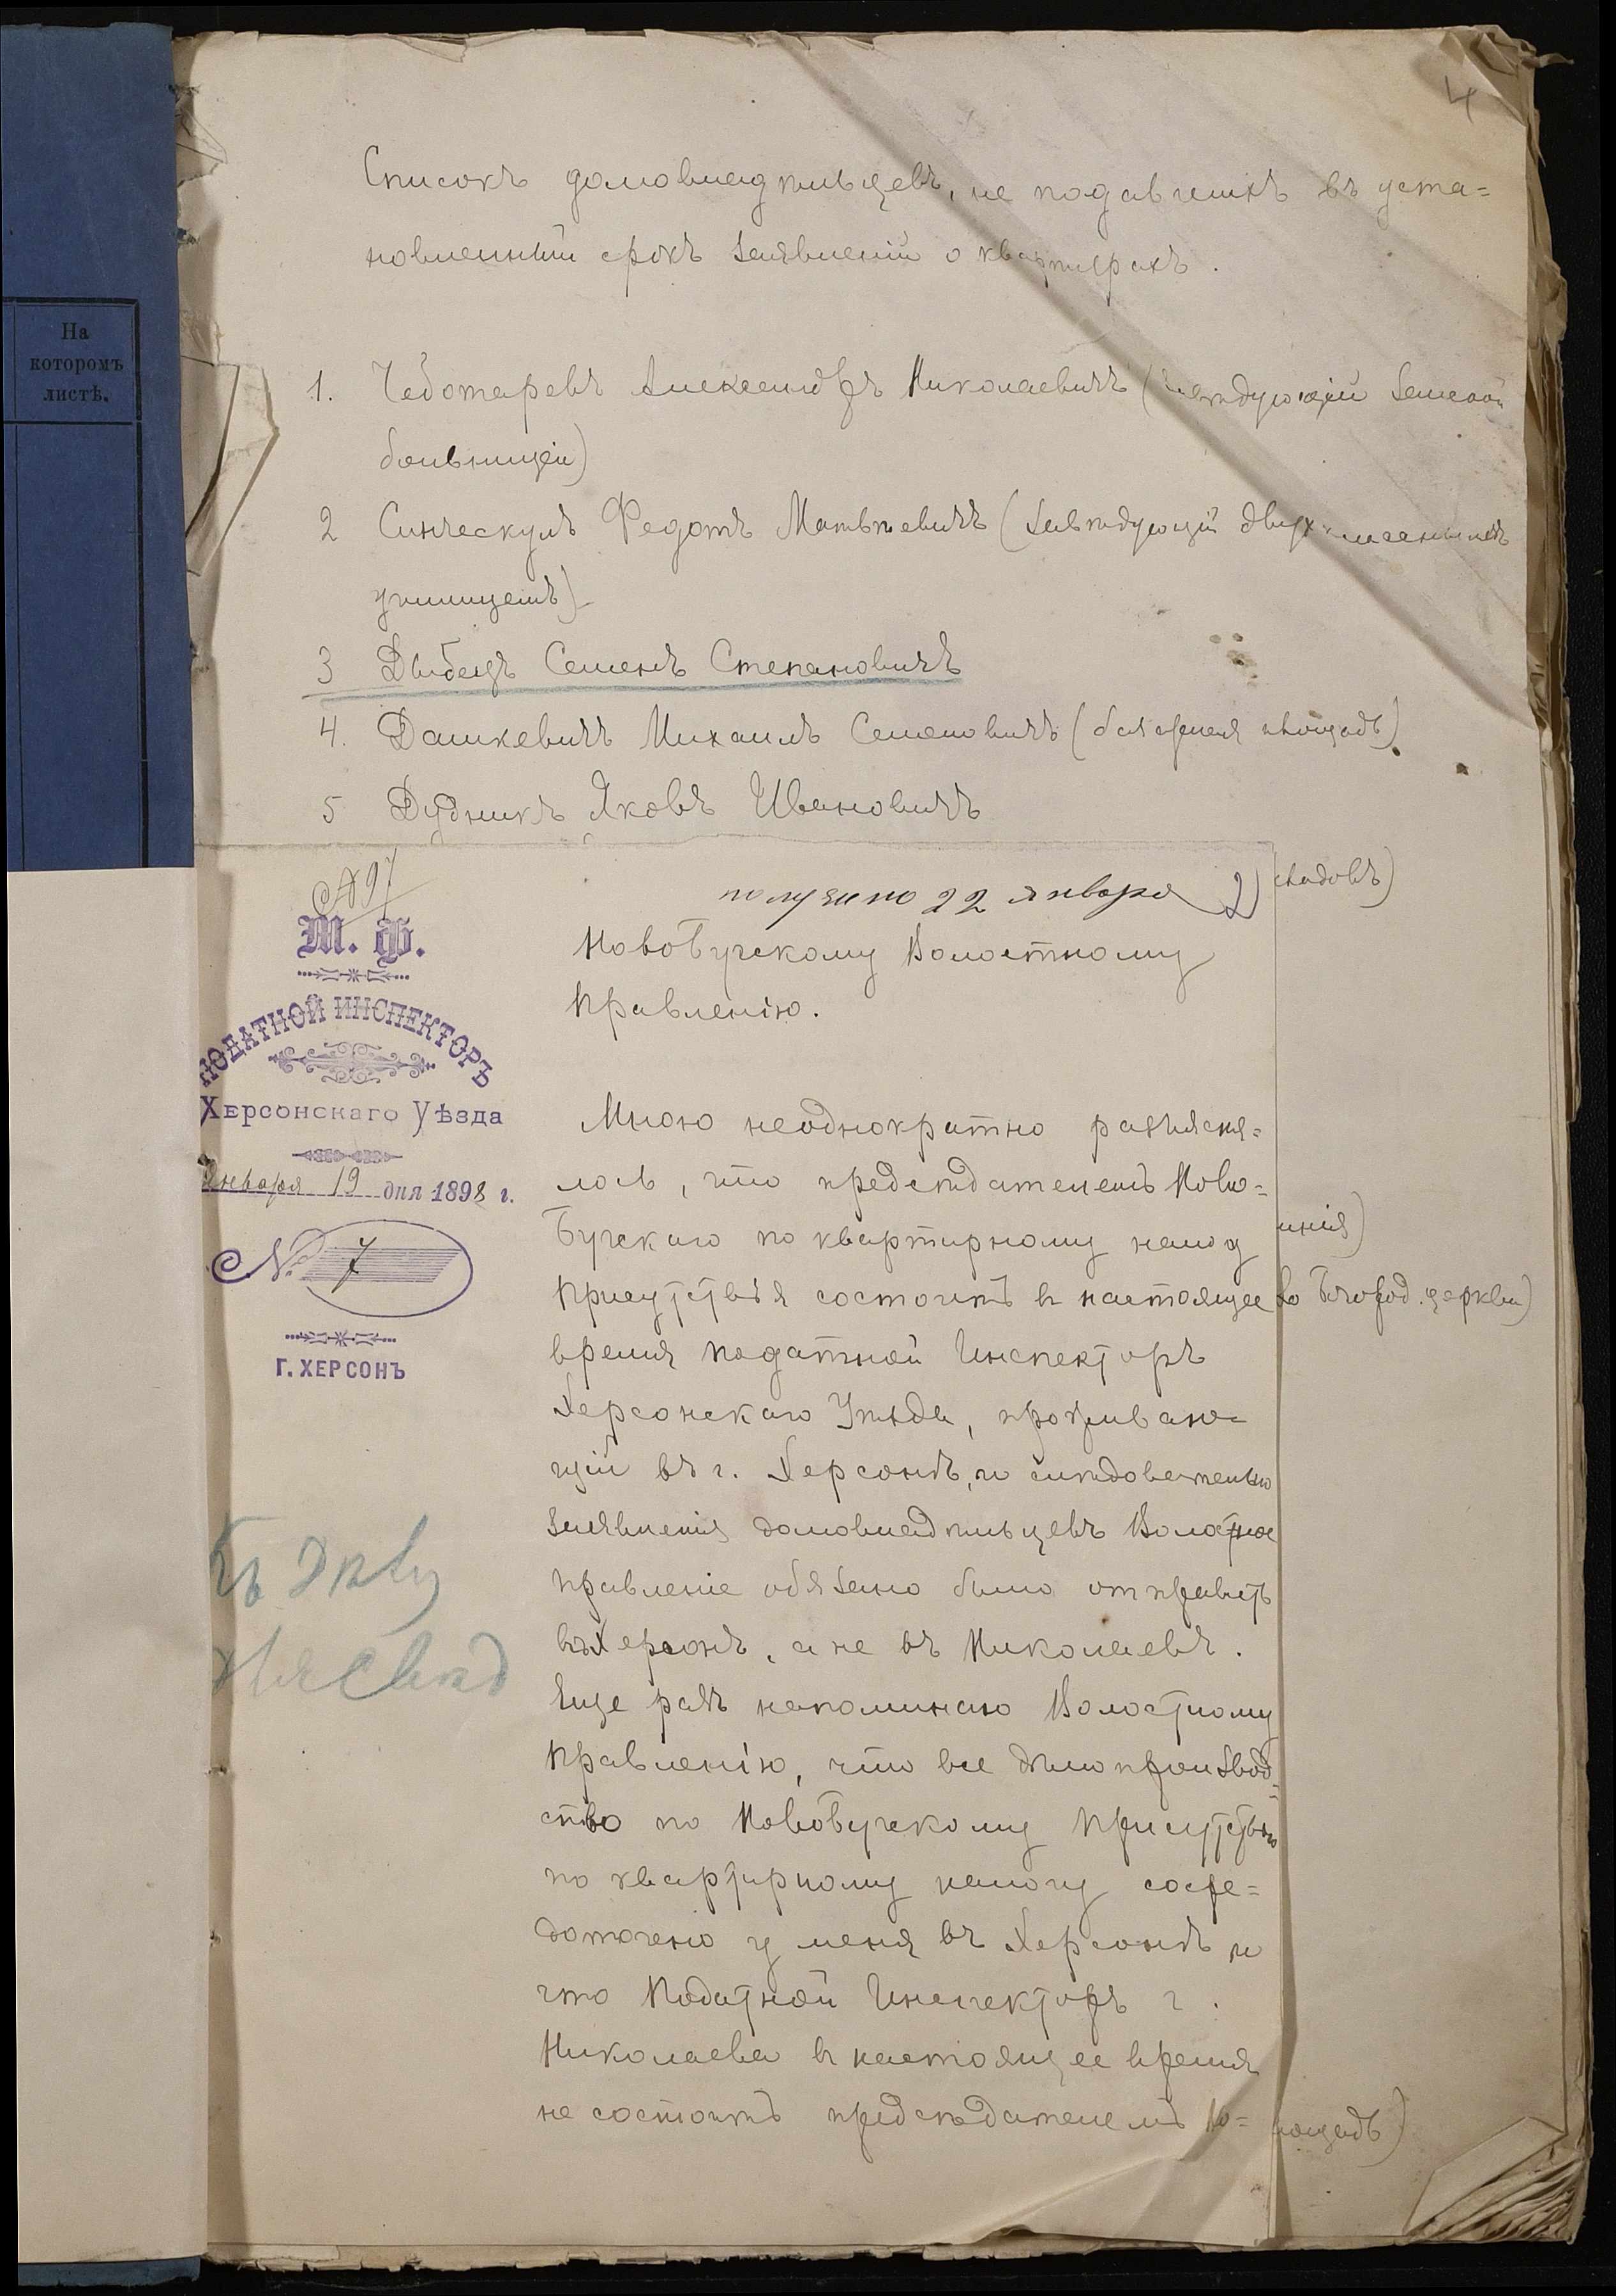 4
На
которомъ
листѣ.
Списокъ домовладѣльцевъ, не подавшихъ въ уста=
новленный срокъ заявленій о квартирахъ.
1. Чеботаревъ Александръ Николаевичъ (завѣдующій земской
больницей)
2 Федотъ Матвѣевичъ (завѣдующій двухкласснымъ
училищемъ)
3 Дыбецъ Семенъ Степановичъ
4. Дашкевичъ Михаилъ Семеновичъ (базарная площадь)
5 Дудникъ Яковъ Ивановичъ
получено 22 января
2)
Т. Ф.
ПОДАТНОЙ ИНСПЕКТОРЪ
Херсонскаго Уѣзда
Января 19 дня 1898 г.
№ 7
Г. ХЕРСОНЪ
Къ дѣлу
НовоБугскому Волостному
Правленію.
Мною неоднократно разъясня=
лось, что предсѣдателемъ Ново=
Бугскаго по квартирному налогу
Присутствія состоитъ въ настоящее
время Податной Инспекторъ
Херсонскаго Уѣзда, проживаю=
щій въ г. Херсонѣ, и слѣдовательно
заявленія домовладѣльцевъ Волостное
Правленіе обязано было отправить
въ Херсонъ, а не въ Николаевъ.
Еще разъ напоминаю Волостному
Правленію, что все дѣлопроизвод=
ство по НовоБугскому Присутствію
по квартирному налогу сосре=
доточено у меня въ Херсонѣ и
что Податной Инспекторъ г.
Николаева въ настоящее время
не состоитъ предсѣдателемъ Но=
нія)
Богород. церкви)
лощадь)